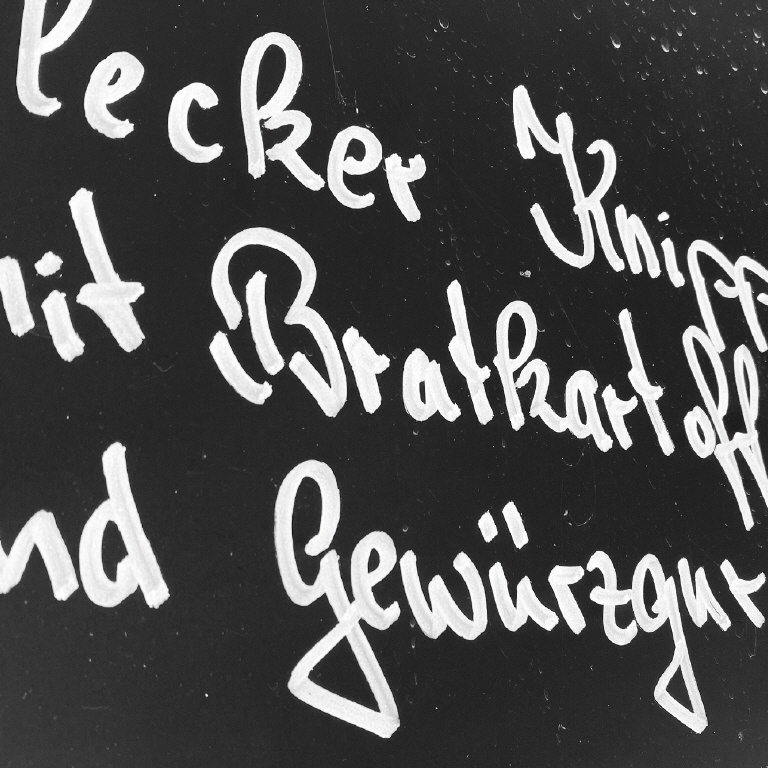 lecker Kniff
mit Bratkartoff
und Gewürzgur